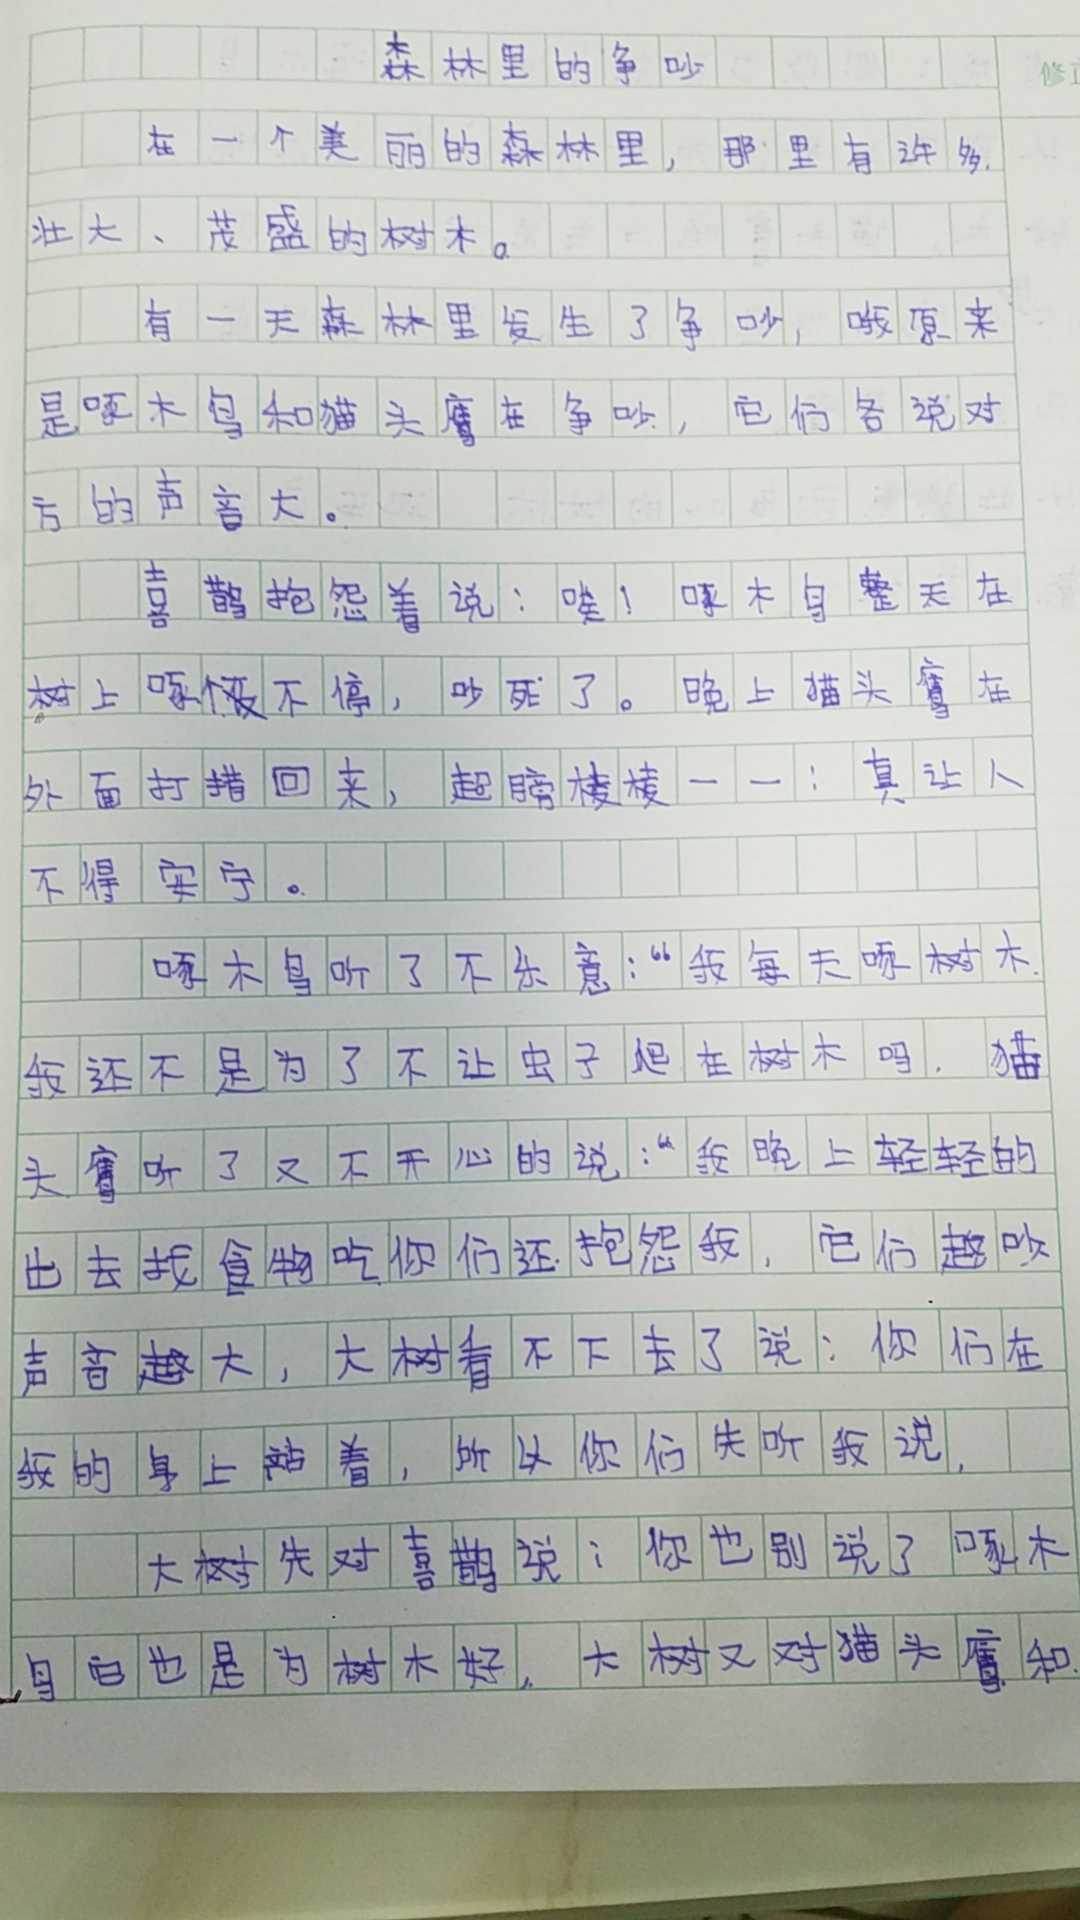 森林里的争吵
修正
在一个美丽的森林里，那里有许多
壮大、茂盛的树木。
有一天森林里发生了争吵，哦原来
是啄木鸟和猫头鹰在争吵，它们各说对
方的声音大。
喜鹊抱怨着说：唉！啄木鸟整天在
树上啄不停，吵死了。晚上猫头鹰在
外面打猎回来，起膀棱棱——：真让人
不得安宁。
啄木鸟听了不乐意：“我每天啄树木.
我还不是为了不让虫子爬在树木吗．猫
头鹰听了又不开心的说：“我晚上轻轻的
出去找食物吃你们还抱怨我．它们越吵
声音越大，大树看不下去了说：你们在
我的身上站着，所以你们先听我说，
大树先对喜鹊说：你也别说了啄木
鸟它也是为树木好，大树又对猫头鹰和